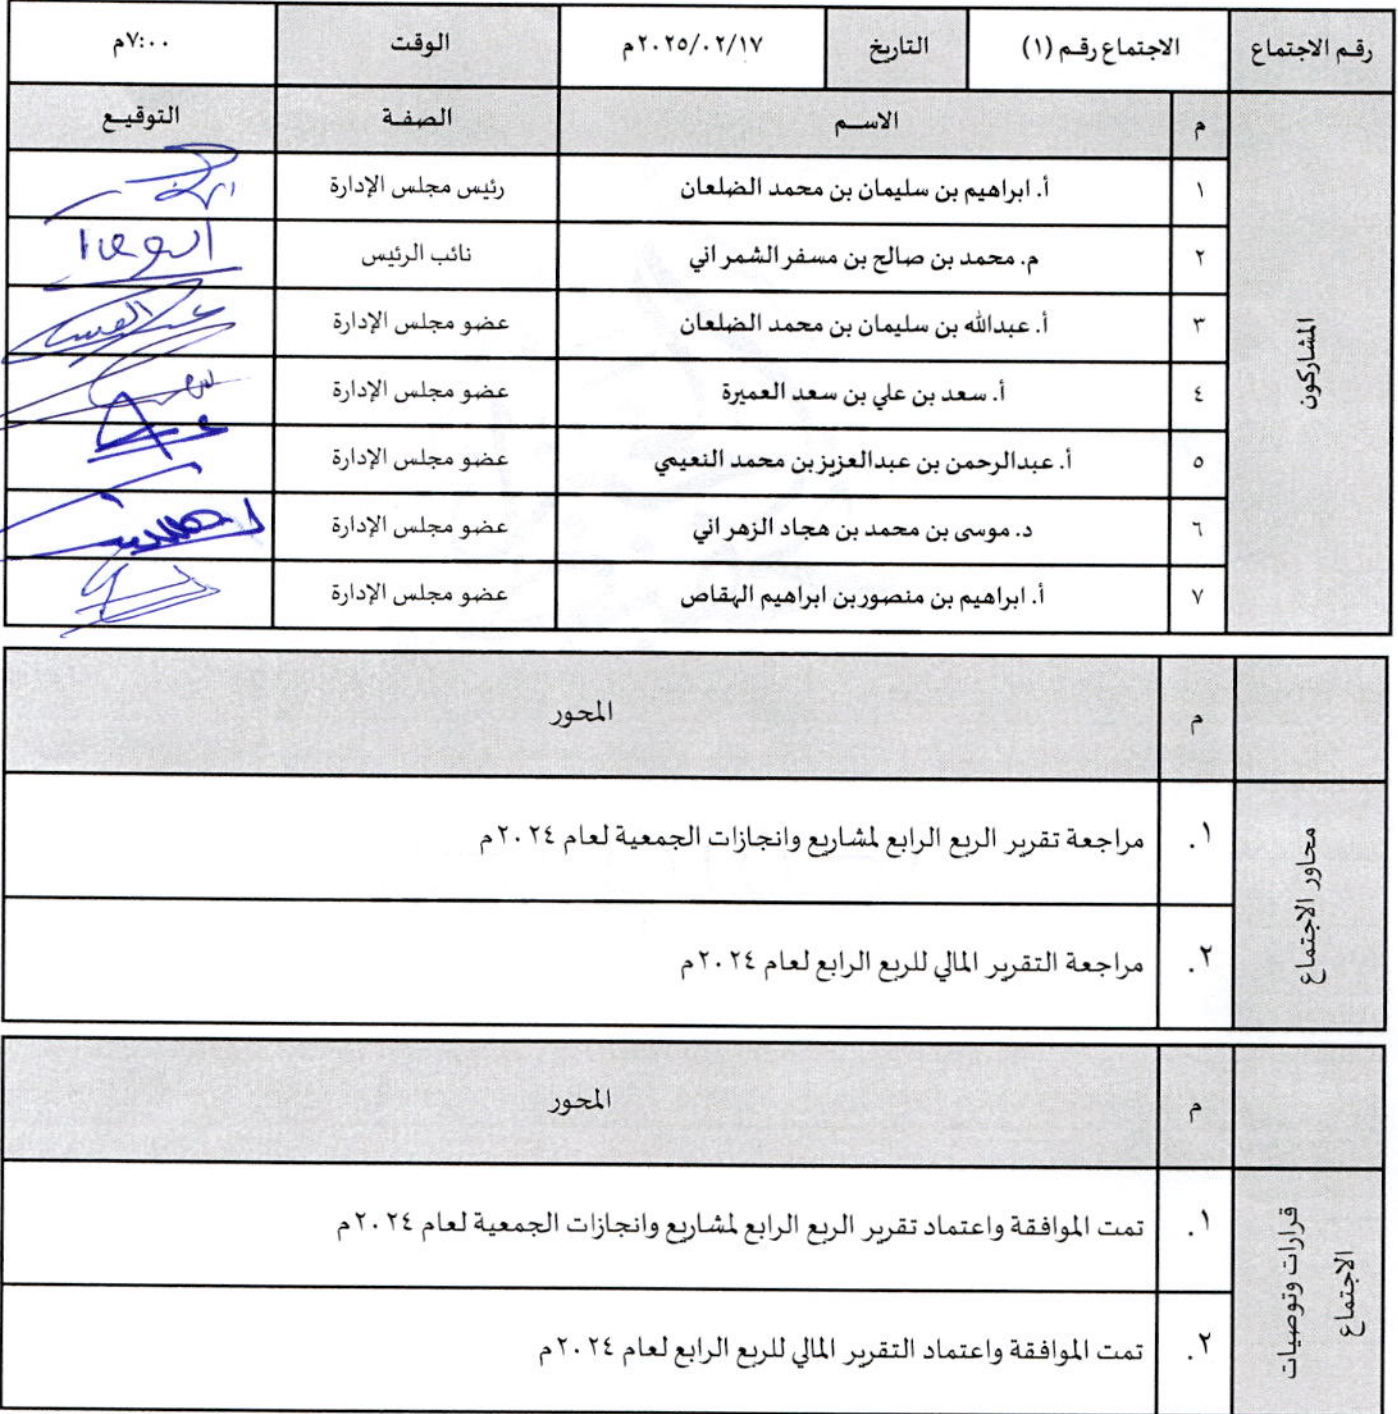 رقم الاجتماع الاجتماع رقم (١) التاريخ ٢٠٢٥/٠٢/١٧م الوقت ٧:٠٠م
المشاركون
م الاسم الصفة التوقيع
١ أ. ابراهيم بن سليمان بن محمد الضلعان رئيس مجلس الإدارة
٢ م. محمد بن صالح بن مسفر الشمراني نائب الرئيس
٣ أ. عبدالله بن سليمان بن محمد الضلعان عضو مجلس الإدارة
٤ أ. سعد بن علي بن سعد العميرة عضو مجلس الإدارة
٥ أ. عبدالرحمن بن عبدالعزيز بن محمد النعيمي عضو مجلس الإدارة
٦ د. موسى بن محمد بن هجاد الزهراني عضو مجلس الإدارة
٧ أ. ابراهيم بن منصور بن ابراهيم الهقاص عضو مجلس الإدارة
م المحور
محاور الاجتماع
١. مراجعة تقرير الربع الرابع لمشاريع وانجازات الجمعية لعام ٢٠٢٤م
٢. مراجعة التقرير المالي للربع الرابع لعام ٢٠٢٤م
م المحور
قرارات وتوصيات
الاجتماع
١. تمت الموافقة واعتماد تقرير الربع الرابع لمشاريع وانجازات الجمعية لعام ٢٠٢٤م
٢. تمت الموافقة واعتماد التقرير المالي للربع الرابع لعام ٢٠٢٤م